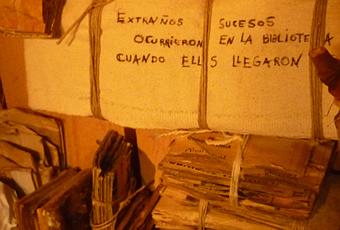 EXTRAÑOS SUCESOS
OCURRIERON EN LA BIBLIOTE A
CUANDO ELL S LLEGARON